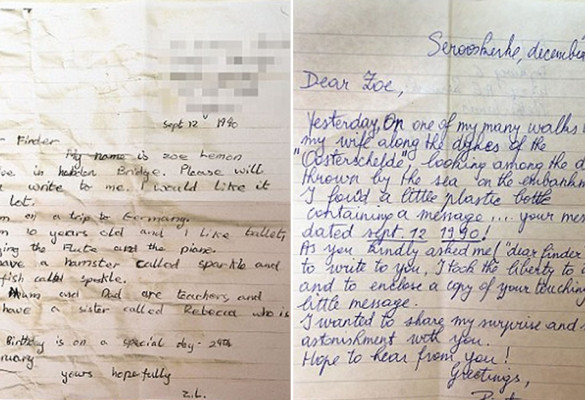 Sept 12 1990
r Finder
My name is zoe Lemon
ve in hebden Bridge. Please will
write to me. I would like it
lot.
m on a trip to Germany.
m 10 years old and I like ballet,
ying the Flute and the piano.
ave a hamster called sparkle and
fish called speckle.
Mum and Dad are teachers, and
have a sister called Rebecca who is
Birthday is on a special day - 29th
ruary.
yours hopefully
Z.L.
Serooskerke, december
Dear Zoe,
Yesterday, On one of my many walks
my wife along the dykes of the
"Oosterschelde", looking among the d
thrown by the sea on the embank
I found a little plastic bottle
containing a message... your me
dated sept. 12 1990!
As you kindly asked me ("dear finder
to write to you, I took the liberty to
and to enclose a copy of your touchin
little message.
I wanted to share my surprise and
astonishment with you.
Hope to hear from you!
Greetings,